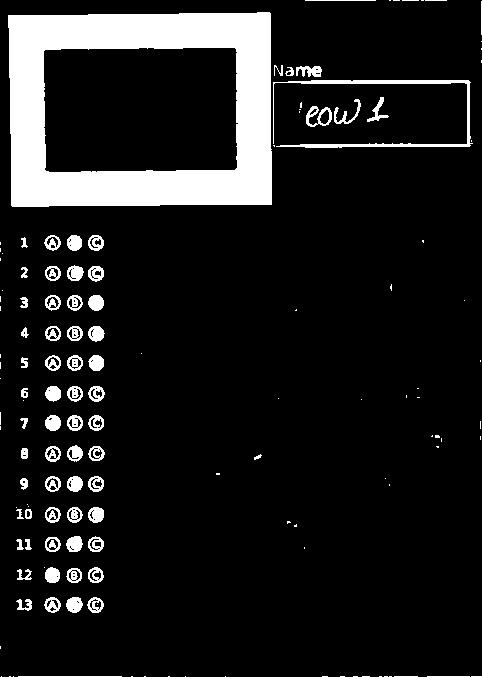 Name
eow 1
1 A C
2 A C
3 A B
4 A B
5 A B
6 B C
7 B C
8 A C
9 A C
10 A B
11 A C
12 B C
13 A C